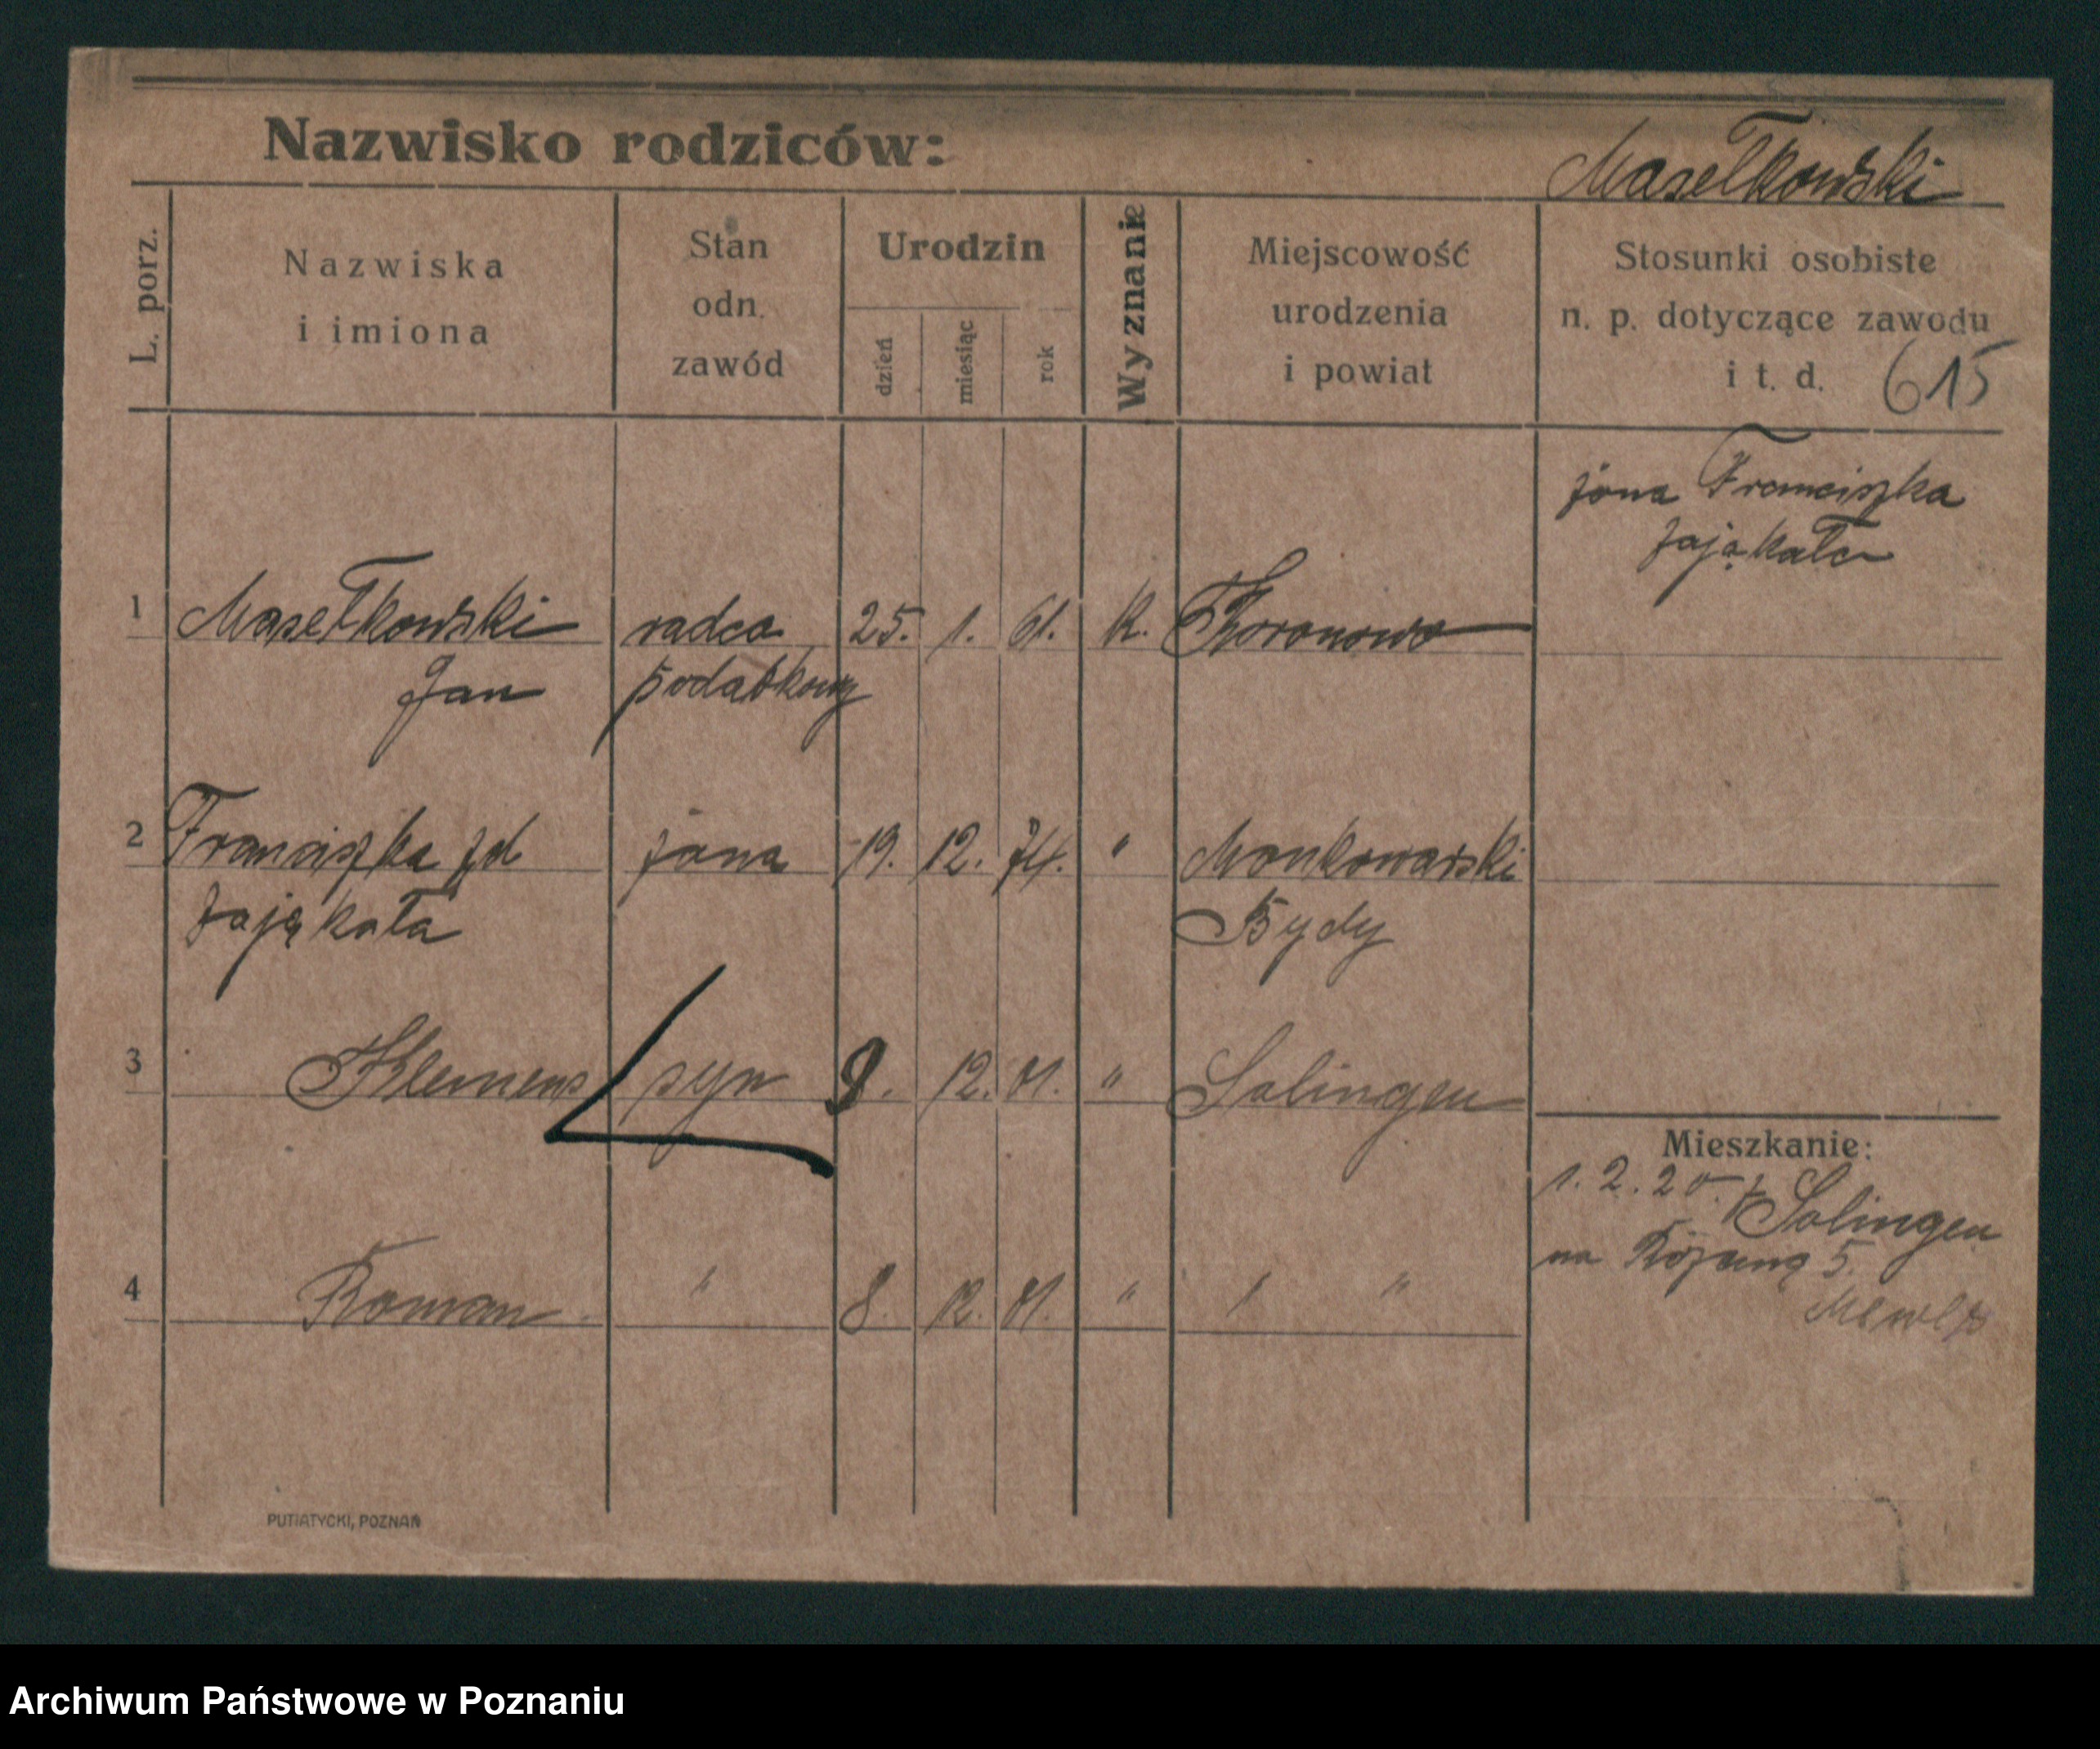 Nazwisko rodziców: Masełkowski
L. porz.
Nazwiska
i imiona
Stan
odn.
zawód
Urodzin
dzień
miesiąc
rok
Wyznanie
Miejscowość
urodzenia
i powiat
Stosunki osobiste
n. p. dotyczące zawodu
i t. d. 615
żona Franciszka
Zająkała
1 Masełkowski radca 25. 1. 61. K. Koronowo
Jan podatkowy
2 Franciszka zd żona 19. 12. 74. " Monkowarski
Zająkała Bydg
3 Klemens syn 8. 12. 01. " Solingen
Mieszkanie:
1. 2. 20. z Solingen
na Różaną 5.
4 Roman " 8. 12. 01. " " "
PUTIATYCKI, POZNAŃ
Archiwum Państwowe w Poznaniu